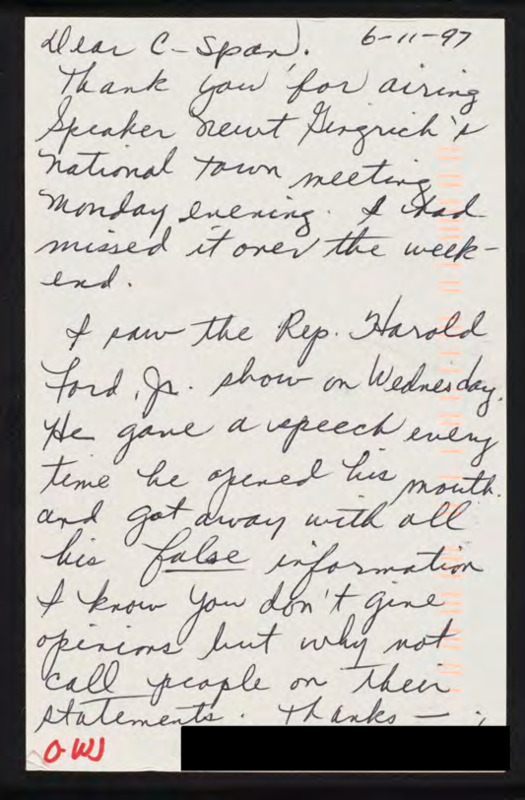 Dear C-Span, 6-11-97
Thank you for airing
Speaker Newt Gingrich's
national town meeting
Monday evening. I had
missed it over the week-
end.
I saw the Rep. Harold
Ford, Jr. show on Wednesday.
He gave a speech every
time he opened his mouth.
and got away with all
his false information
I know you don't give
opinions but why not
call people on their
statements. Thanks —
O-WJ